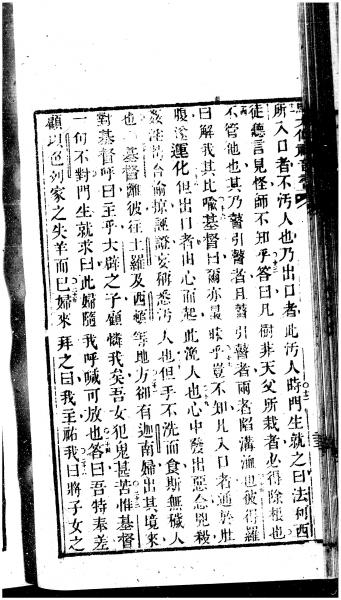 所入口者不汚人也乃出口者此汚人時門生就之曰法利西
徒聽言見怪師不知乎答曰凡樹非天父所栽者必得除根也
不管他也其乃瞽引瞽者且瞽引瞽者兩者陷溝洫也彼得羅
曰解我其比喻基督曰爾亦是昧乎豈不知凡入口者通於肚
腹遂運化但出口者由心而起此濊人也心中發出惡念兇殺
姦淫汚合偷掠誣證妄稱悉汚人也但手不洗而食斯無穢人
也基督離彼往土羅及西頓等地方卻有迦南婦出其境來
對基督呼曰主乎大辟之子顧憐我矣吾女犯鬼甚苦惟基督
一句不對門生就求曰此婦隨我呼喊可放也答曰吾特奉差
顧以色列家之失羊而已婦來拜之曰我主祐我曰將子女之